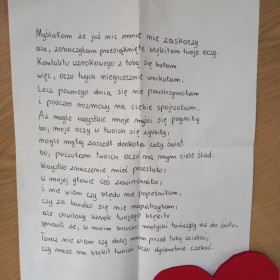 Myślałam że już nic mnie nie zaskoczy
ale, zobaczyłam przesiąknięte błękitem twoje oczy.
Kontaktu wzrokowego z tobą się bałam
więc, oczu twych niegrzecznie unikałam.
Lecz pewnego dnia się nie powstrzymałam
i podczas rozmowy na ciebie spojrzałam.
Aż nagle wszystkie moje myśli się pogubiły
bo, moje oczy w twoich się zgubiły;
nagle mgłą zaszedł dookoła cały świat
bo, poczułam twoich oczu na mym ciele ślad.
Wszystko znaczenie mieć przestało;
w mojej głowie coś zawirowało;
i nie wiem czy błędu nie popełniłam,
czy za bardzo się nie napatrzyłam;
ale chwilowy wzrok twojego błękitu
sprawił że, w moim brzuchu motylki tańczyły aż do świtu.
Teraz nie wiem czy dalej mam przed tobą uciekać;
czy może na błękit twoich oczu dyskretnie czekać.